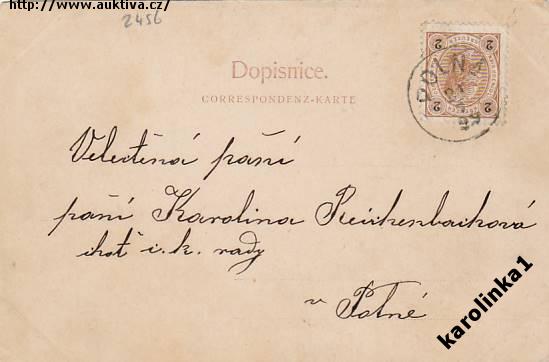 http://www.auktiva.cz/
2456
Dopisnice.
CORRESPONDENZ-KARTE
2 2
2 2
POLNA
99
Velectěná paní
paní Karolina Reichenbachová
choť c. k. rady
v Polné
karolinka1